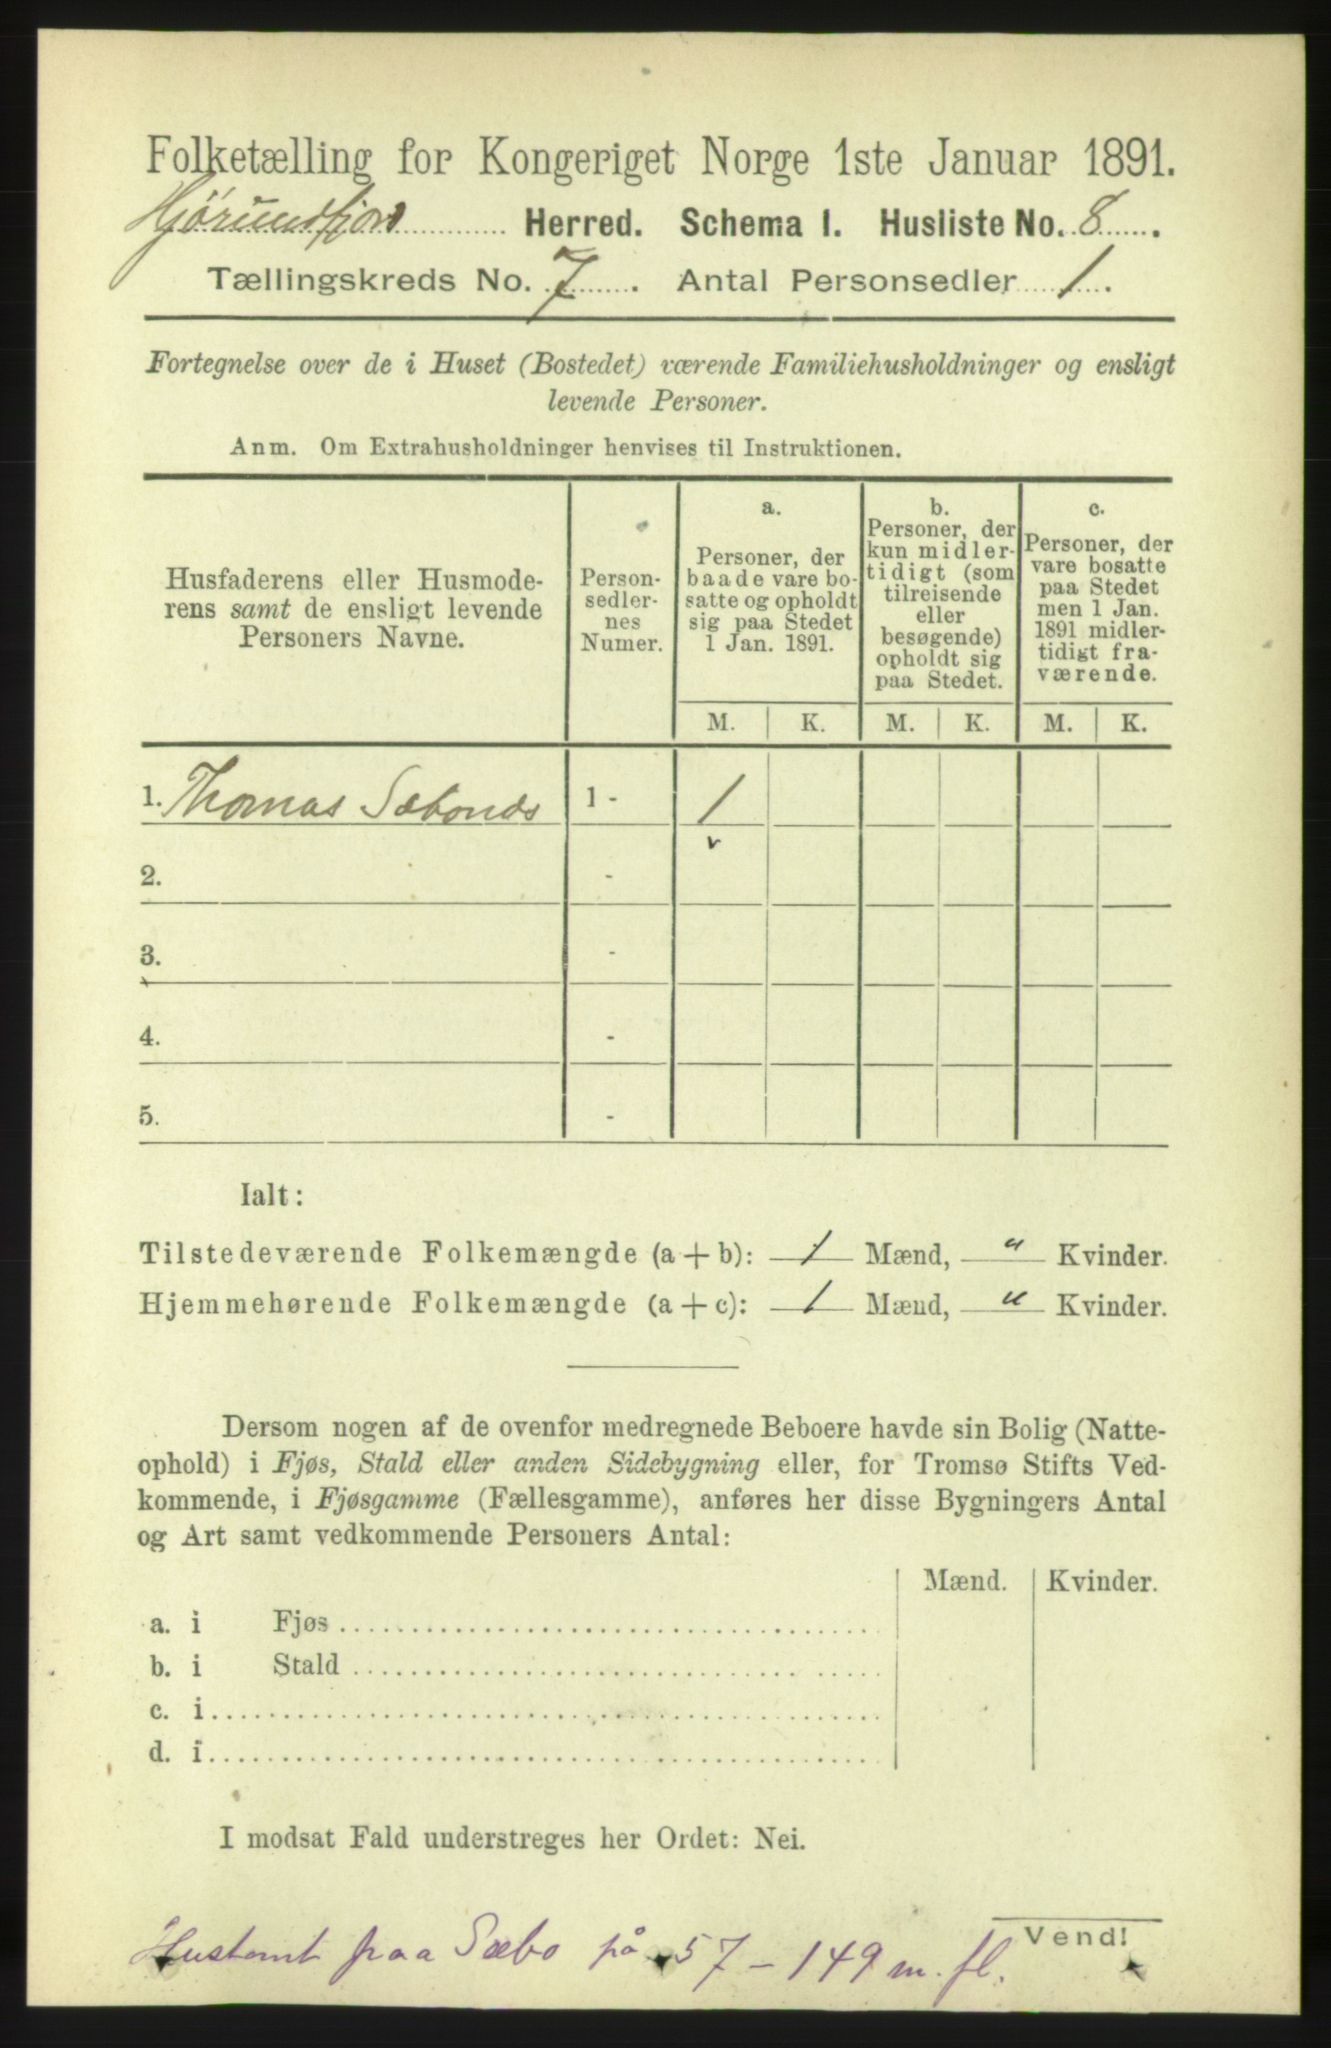 Folketælling for Kongeriget Norge 1ste Januar 1891.
Hjørundfjord Herred. Schema I. Husliste No. 8.
Tællingskreds No. 7. Antal Personsedler 1.
Fortegnelse over de i Huset (Bostedet) værende Familiehusholdninger og ensligt
levende Personer.
Anm. Om Extrahusholdninger henvises til Instruktionen.
Husfaderens eller Husmode-
rens samt de ensligt levende
Personers Navne.
Person-
sedler-
nes
Numer.
a.
Personer, der
baade vare bo-
satte og opholdt
sig paa Stedet
1 Jan. 1891.
b.
Personer, der
kun midler-
tidigt (som
tilreisende
eller
besøgende)
opholdt sig
paa Stedet.
c.
Personer, der
vare bosatte
paa Stedet
men 1 Jan.
1891 midler-
tidigt fra-
værende.
M. K. M. K. M. K.
1. Thomas 1 - 1
2. -
3. -
4. -
5. -
Ialt:
Tilstedeværende Folkemængde (a + b): 1 Mænd, " Kvinder.
Hjemmehørende Folkemængde (a + c): 1 Mænd, " Kvinder.
Dersom nogen af de ovenfor medregnede Beboere havde sin Bolig (Natte-
ophold) i Fjøs, Stald eller anden Sidebygning eller, for Tromsø Stifts Ved-
kommende, i Fjøsgamme (Fællesgamme), anføres her disse Bygningers Antal
og Art samt vedkommende Personers Antal:
Mænd. Kvinder.
a. i Fjøs
b. i Stald
c. i
d. i
I modsat Fald understreges her Ordet: Nei.
Vend!
paa Sæbo på 57 - 149 m. fl.